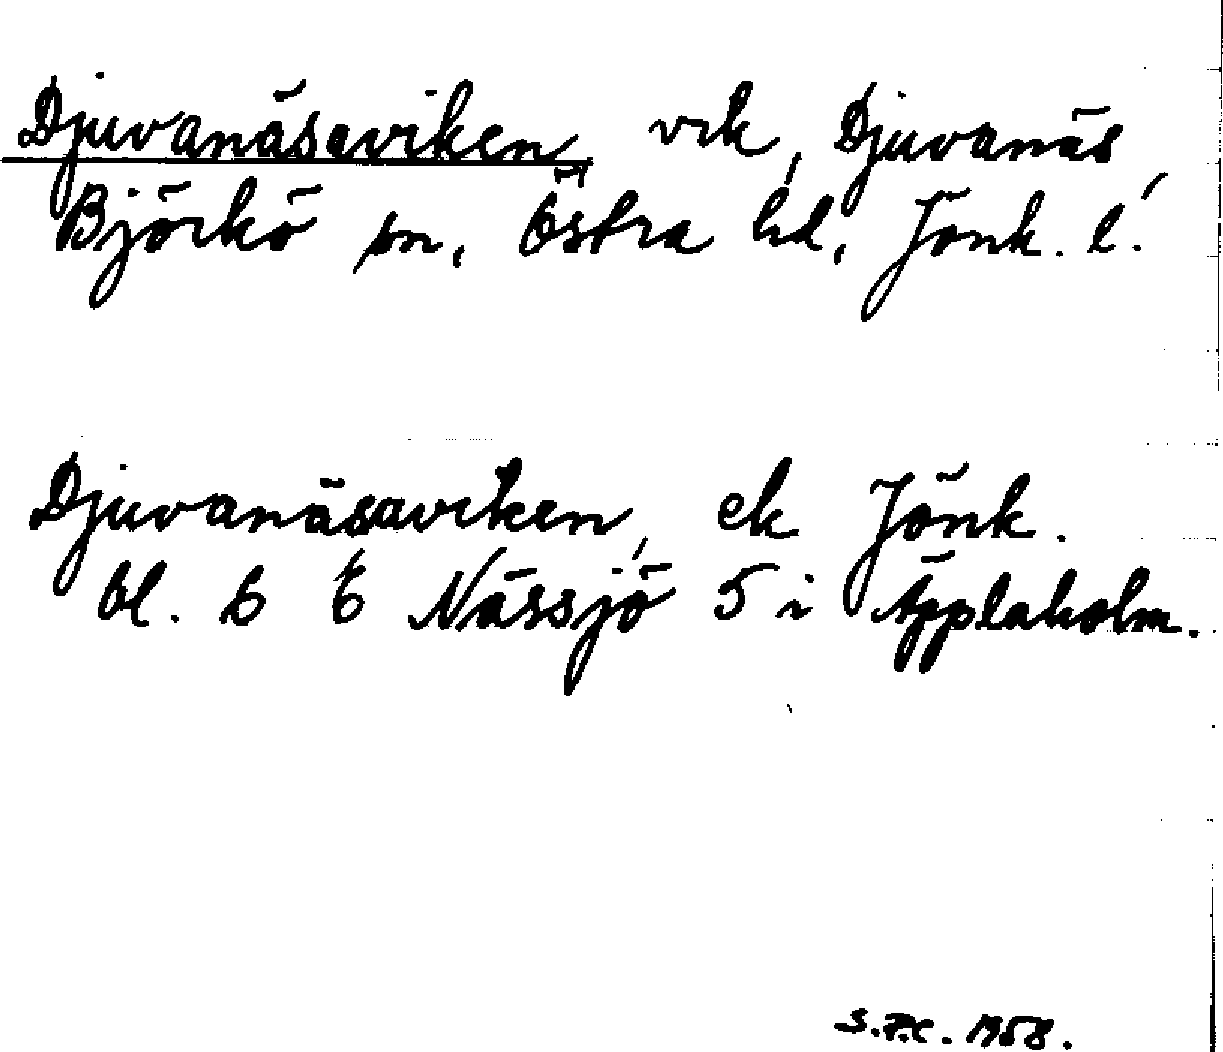 Djuvanäsaviken, vik, Djuvanäs,
Björkö sn, Östra hd, Jönk. l.
Djuvanäsaviken, ek Jönk.
bl. 6 E Nässjö 5 i Äpplaholm.
1958.